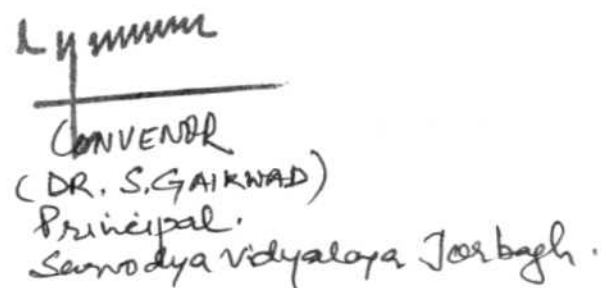 CONVENOR
(DR. S. GAIKWAD)
Principal.
Sarvodya Vidyalaya Jorbagh.